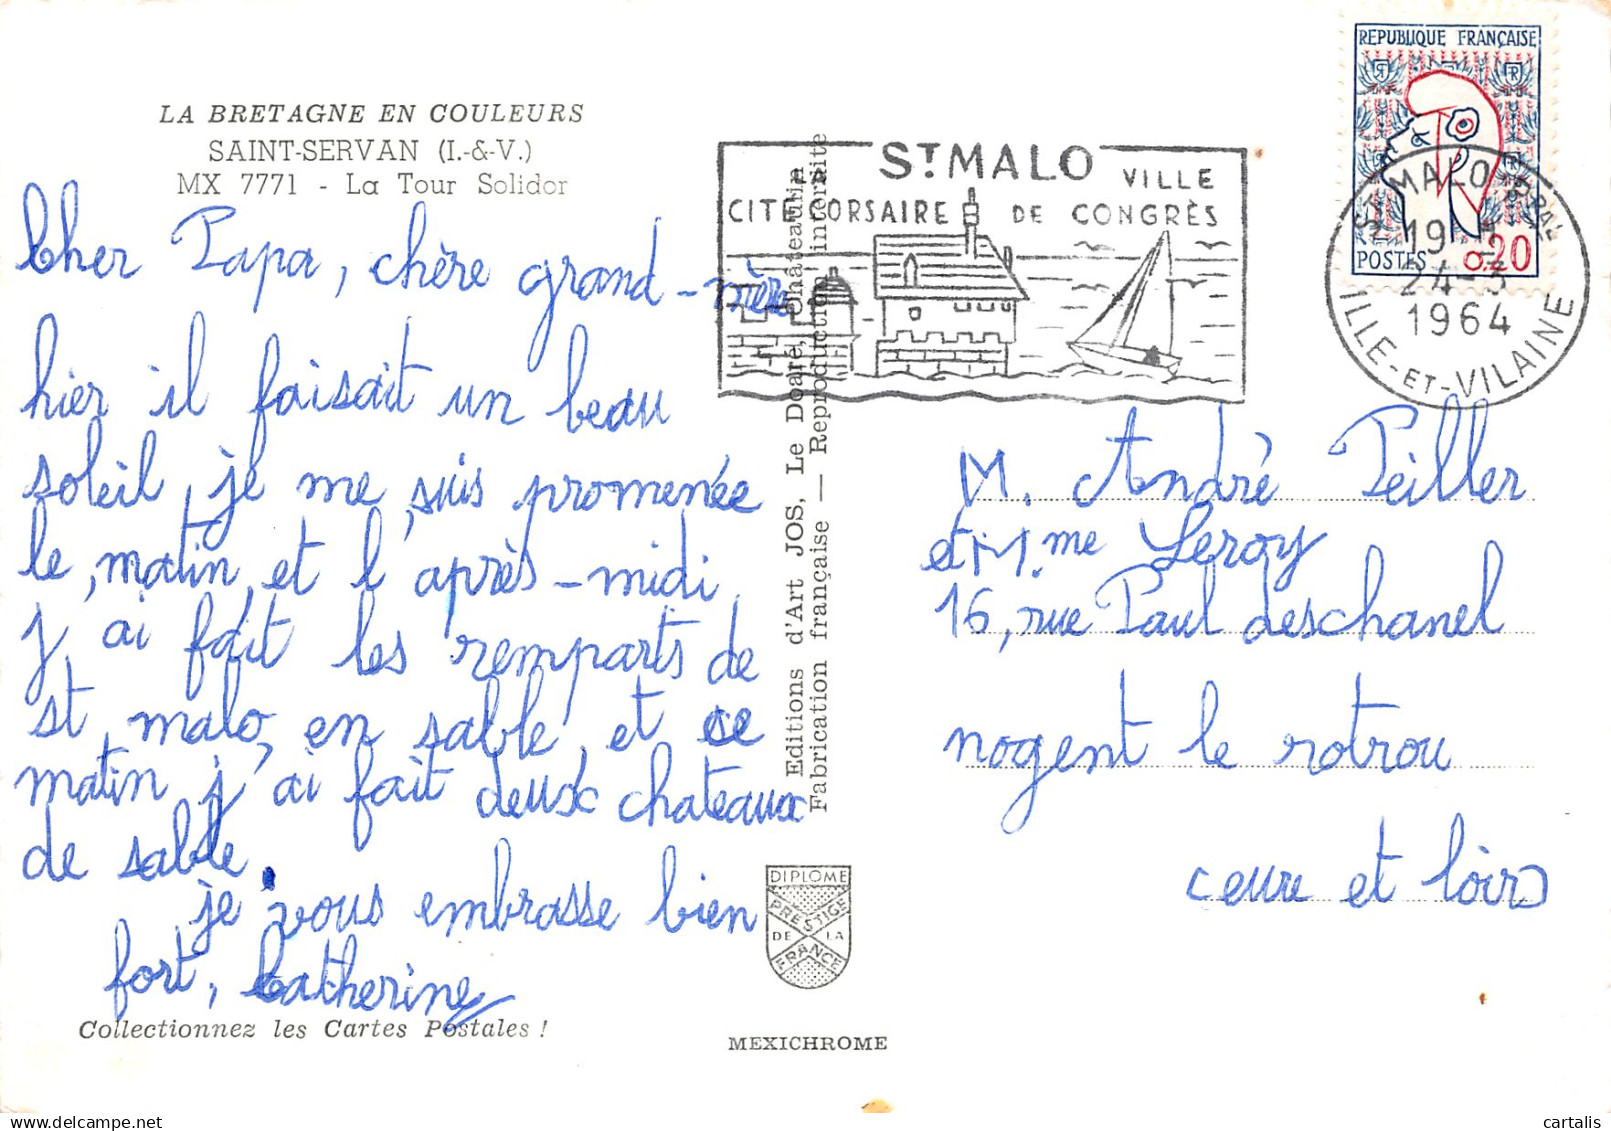 LA BRETAGNE EN COULEURS
SAINT-SERVAN (I.-&-V.)
MX 7771 - La Tour Solidor
Cher Papa, chère grand-mère
hier il faisait un beau
soleil, je me suis promenée
le, matin, et l'après-midi
j'ai fait les remparts de
st malo, en sable, et ce
matin j'ai fait deux chateaux
de sable.
je vous embrasse bien
fort, Catherine
Collectionnez les Cartes Postales !
Editions d'Art JOS, Le Doaré, Châteaulin
Fabrication française — Reproduction interdite
DIPLOME
PRESTIGE
DE LA
FRANCE
MEXICHROME
ST MALO
CITÉ CORSAIRE
VILLE
DE CONGRÈS
REPUBLIQUE FRANÇAISE
RF
RF
POSTES 0,20
ST MALO PPAL
19 H
24-3
1964
ILLE-ET-VILAINE
M. André Peiller
et Mme Leroy
16, rue Paul deschanel
nogent le rotrou
(eure et loir)
cartalis
https://www.delcampe.net